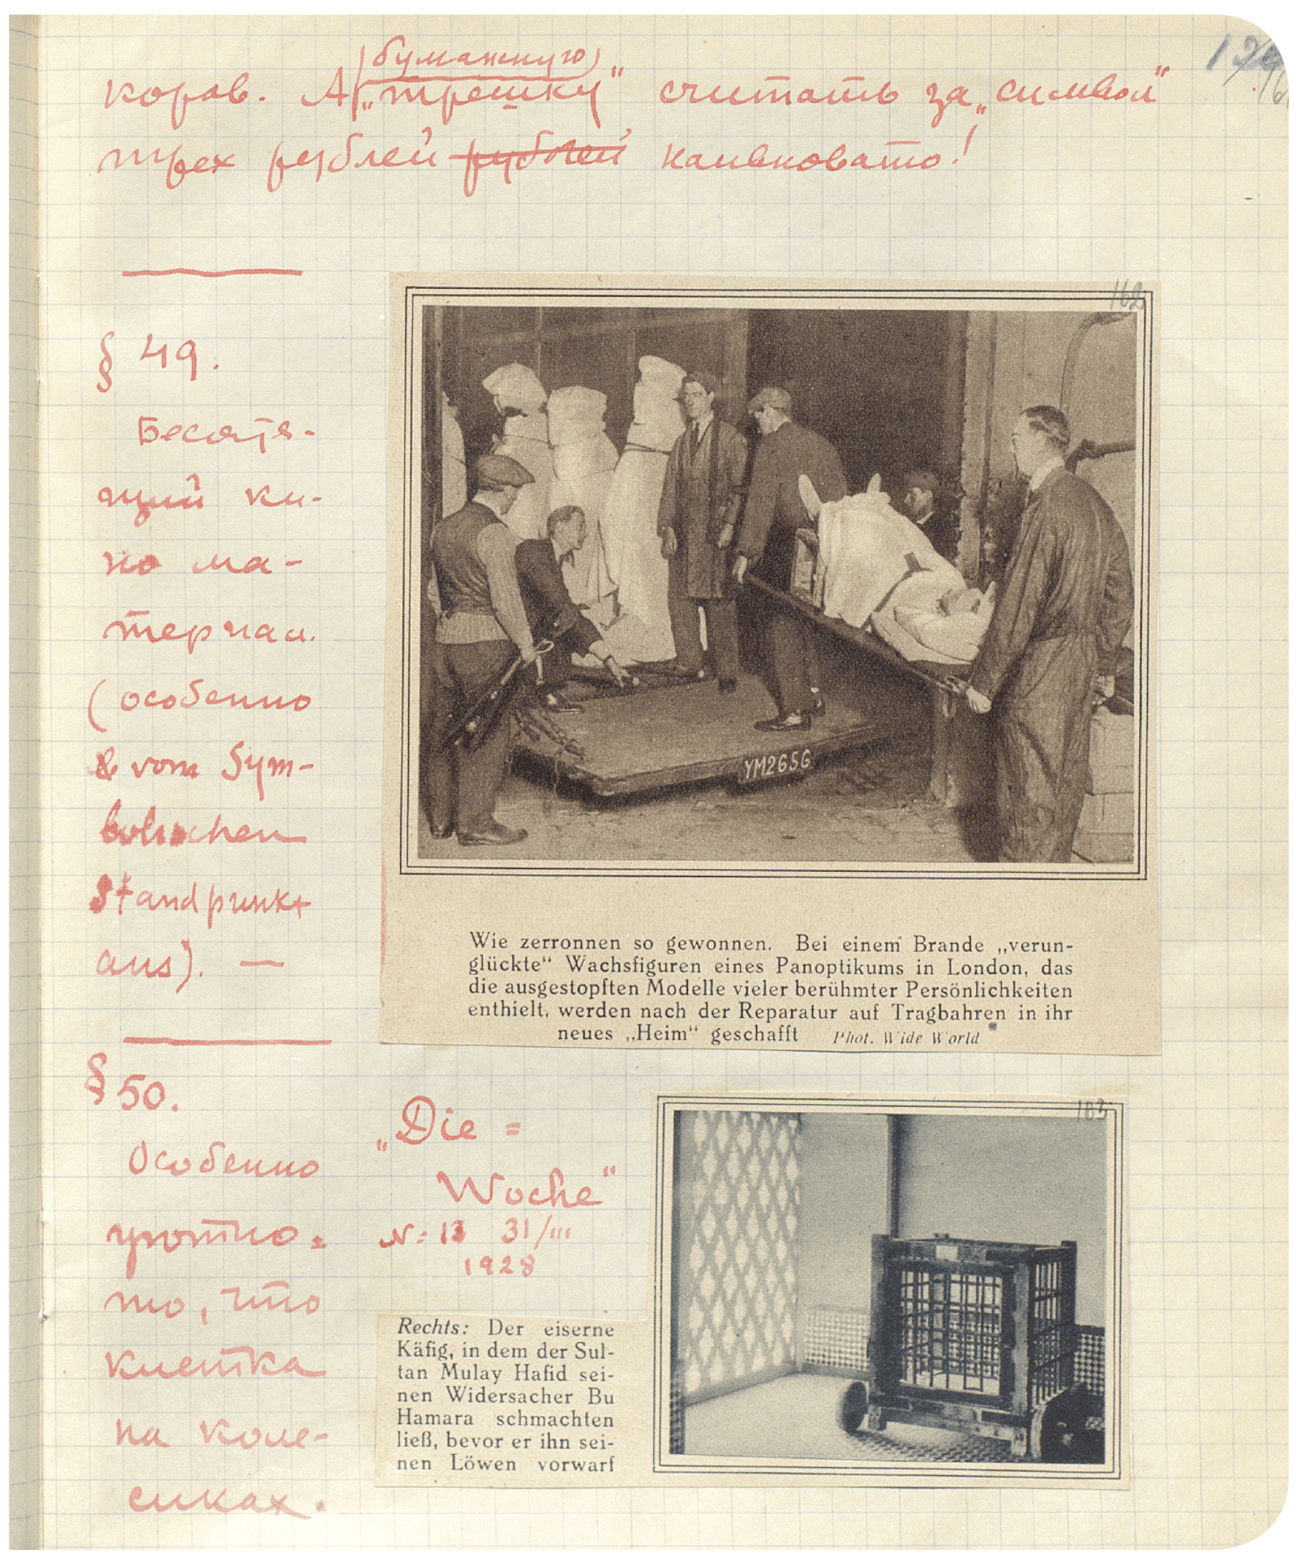 (бумажную)
коров. А „трешку“ считать за „символ“
трех рублей рублей наивновато!
§ 49.
Бесятя-
щий ки-
но ма-
териал.
(особенно
vom Sym-
bolischen
Standpunkt
aus). —
162
YM2656
Wie zerronnen so gewonnen. Bei einem Brande „verun-
glückte“ Wachsfiguren eines Panoptikums in London, das
die ausgestopften Modelle vieler berühmter Persönlichkeiten
enthielt, werden nach der Reparatur auf Tragbahren in ihr
neues „Heim“ geschafft Phot. Wide World
§ 50.
Особенно
уютно-
то, что
клетка
на коле-
сиках.
„Die =
Woche“
N= 13 31/III
1928
163
Rechts: Der eiserne
Käfig, in dem der Sul-
tan Mulay Hafid sei-
nen Widersacher Bu
Hamara schmachten
ließ, bevor er ihn sei-
nen Löwen vorwarf